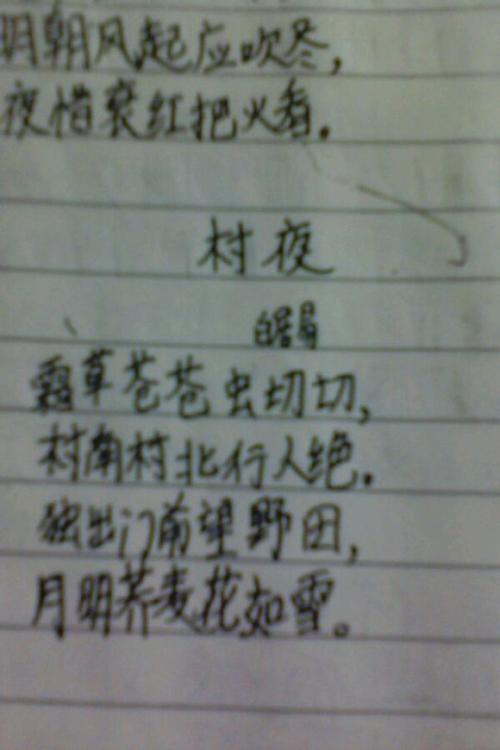 明朝风起应吹尽,
夜惜衰红把火看。
村夜
白居易
霜草苍苍虫切切,
村南村北行人绝。
独出门前望野田,
月明荞麦花如雪。